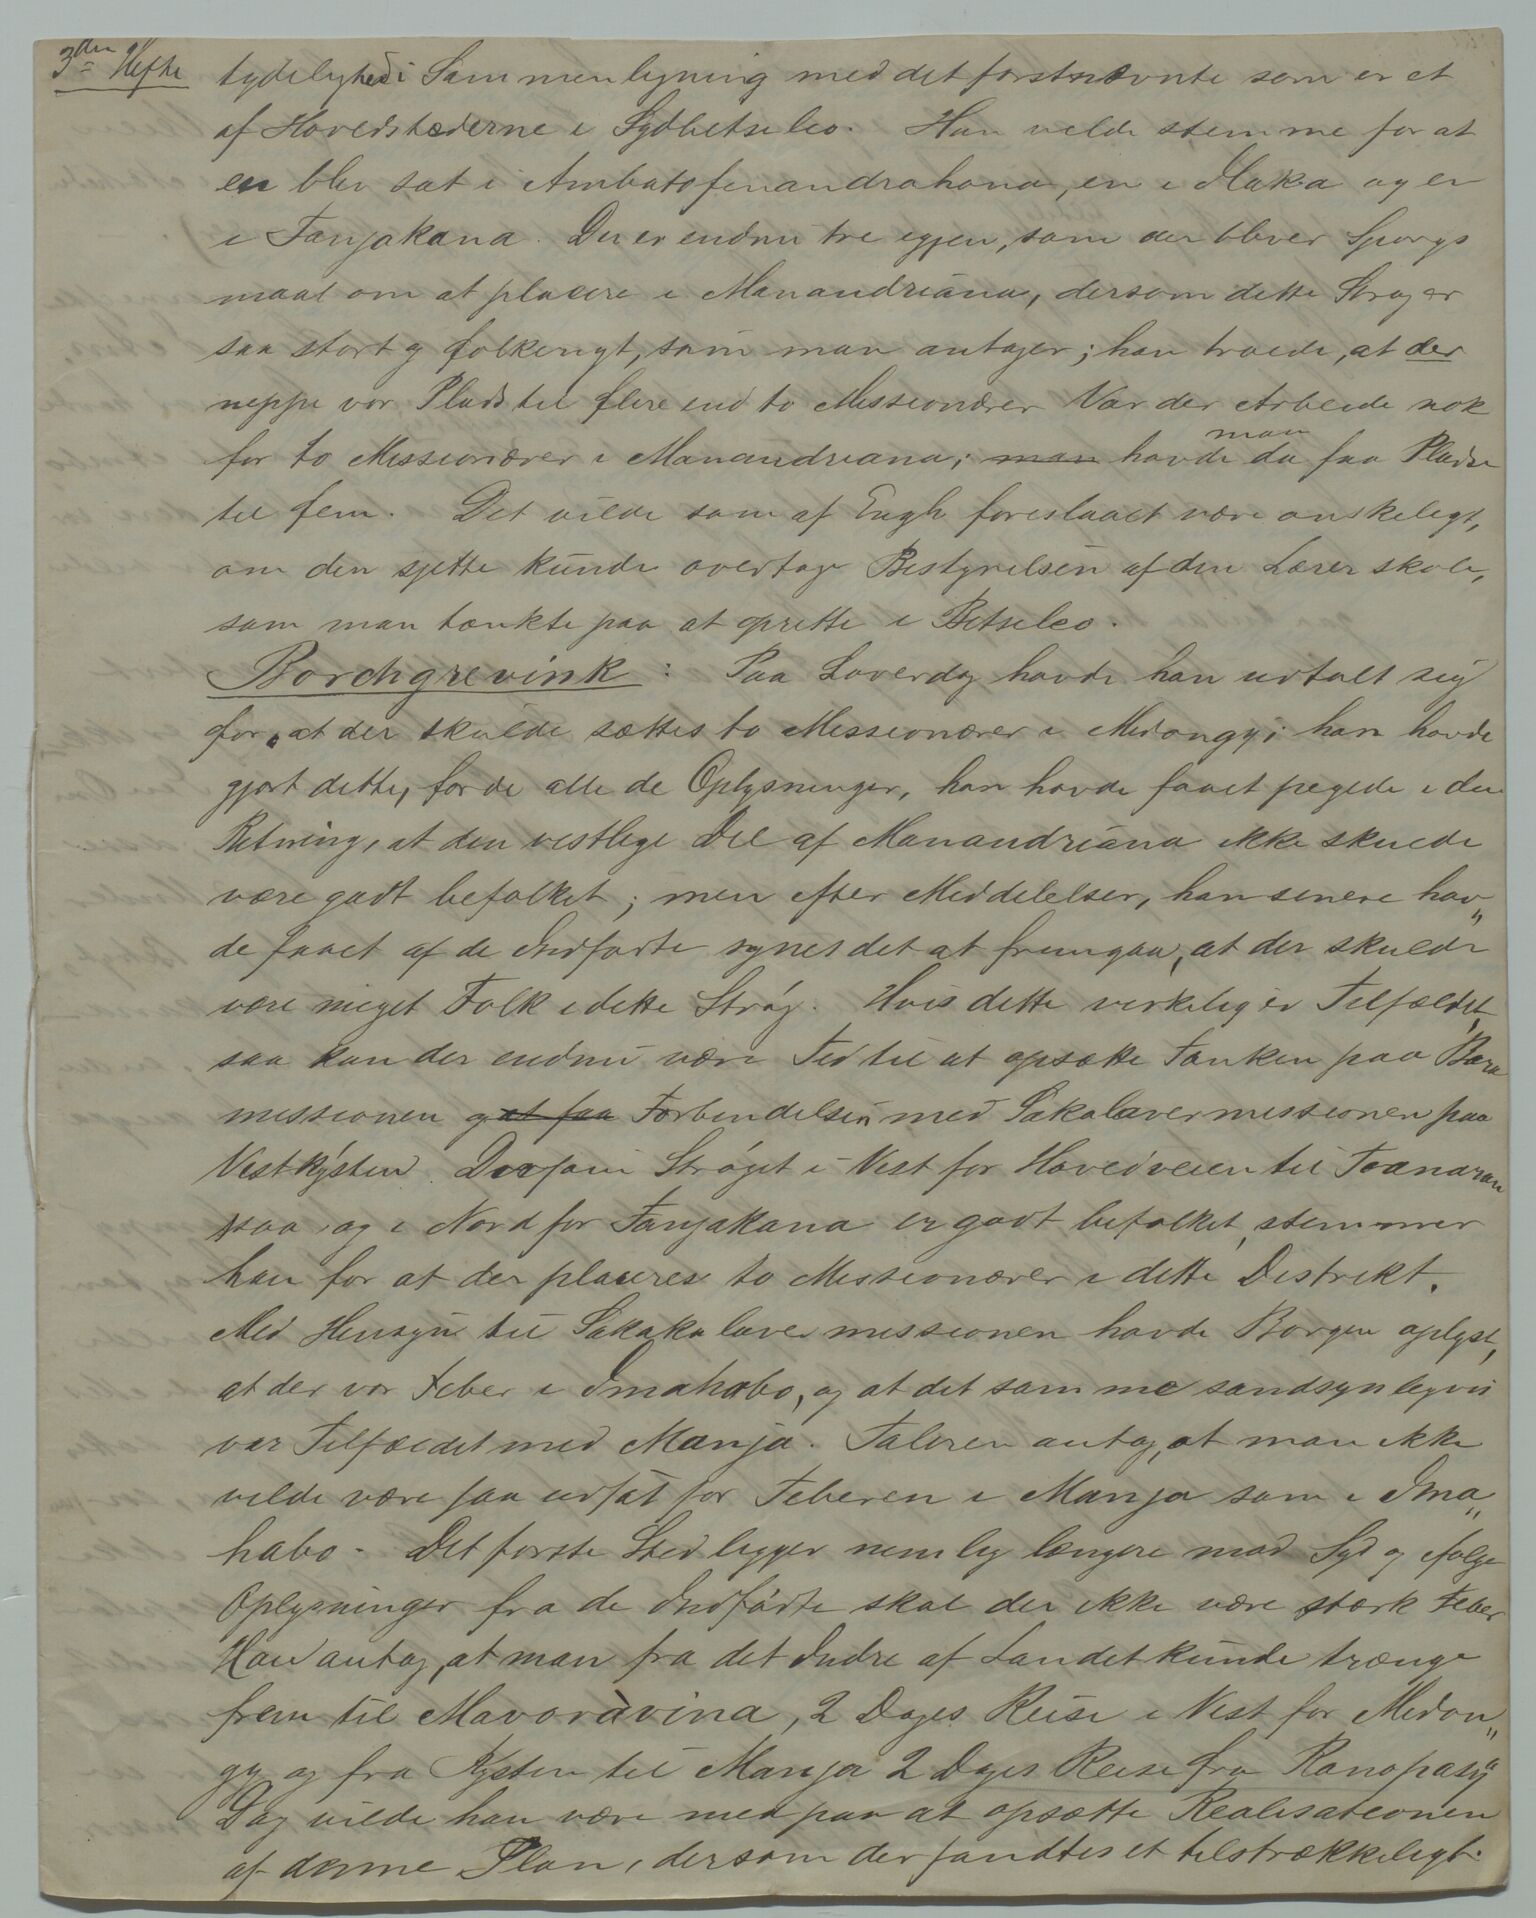 3die Hefte
tydelighed i Sammenligning med det førstnævnte som er et
af Hovedstæderne i Sydbetsileo. Han vilde stemme for at
en blev sat i Ambatofinandrahana, en i Ilaka og en
i Fanjakana. Der er endnu tre igjen, som der bliver Spørgs
maal om at placere i Manandriana, dersom dette Strøg er
saa stort og folkerigt, som man antager; han troede, at der
neppe var Plads til flere end to Missionærer Var der Arbeide nok
for to Missionærer i Manandriana; man havde man da faa Pladse
til fem. Det vilde som af Engh foreslaaet være ønskeligt,
om den sjette kunde overtage Bestyrelsen af den Lærerskole,
som man tænkte paa at oprette i Betsileo.
Borchgrevink: Paa Løverdag havde han udtalt sig
for, at der skulde sættes to Missionærer i Midongy; han havde
gjort dette, fordi alle de Oplysninger, han havde faaet pegede i den
Retning, at den vestlige Del af Manandriana ikke skulde
være godt befolket; men efter Meddelelser, han senere hav„
de faaet af de Indfødte synes det at fremgaa, at der skulde
være meget Folk i dette Strøg. Hvis dette virkelig er Tilfældet,
saa kan der endnu være Tid til at opsætte Tanken paa Bara
missionen og at faa Forbindelsen med Sakalavermissionen paa
Vestkysten. Dersom Strøget i Vest for Hovedveien til Fianaran
tsoa, og i Nord for Fanjakana er godt befolket, stemmer
han for at der placeres to Missionærer i dette Distrikt.
Med Hensyn til Sakakalavermissionen havde Borgen oplyst,
at der var Feber i Imahabo, og at det samme sandsynligvis
var Tilfældet med Manja. Taleren antog, at man ikke
vilde være saa udsat for Feberen i Manja som i Ima„
habo. Det første Sted ligger nemlig længere mod Syd og ifølge
Oplysninger fra de Indfødte skal der ikke være stærk Feber
Han antog, at man fra det Indre af Landet kunde trænge
frem til Mavoravina, 2 Dages Reise i Vest for Midon„
gy og fra Kysten til Manja 2 Dages Reise fra Ranopasy
Dog vilde han være med paa at opsætte Realisationen
af denne Plan, dersom der fandtes et tilstrækkeligt